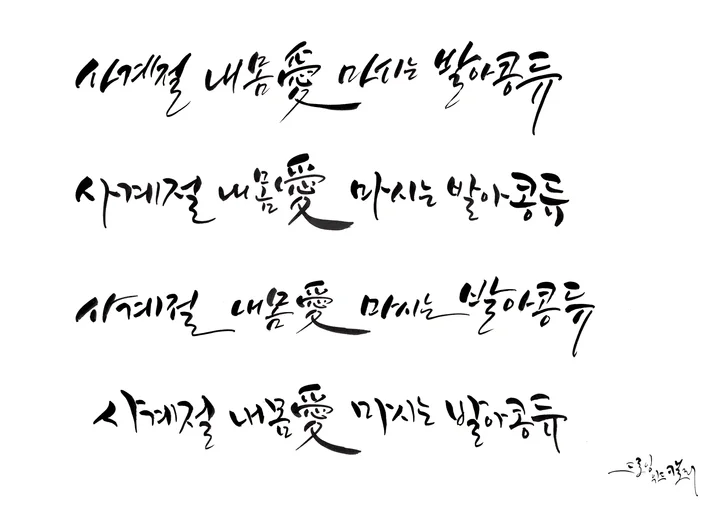 사계절 내몸愛 마시는 발아콩듀
사계절 내몸愛 마시는 발아콩듀
사계절 내몸愛 마시는 발아콩듀
사계절 내몸愛 마시는 발아콩듀